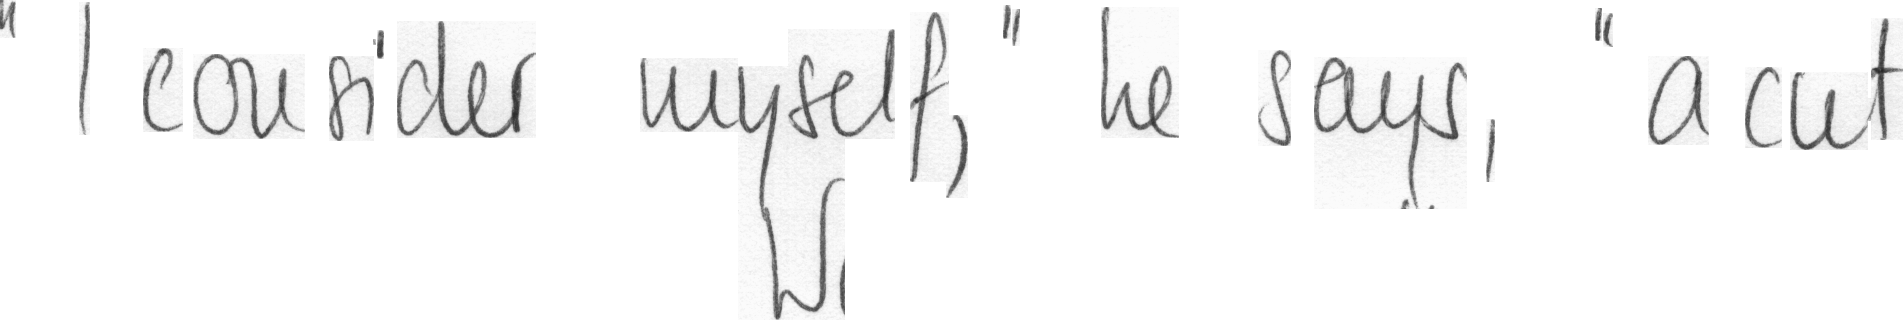 " I consider myself, " he says, " a cut